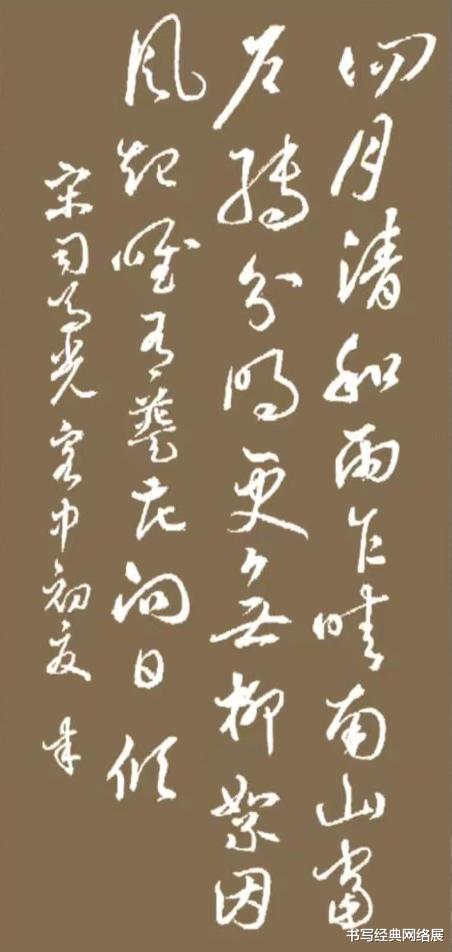 四月清和雨乍晴南山當
户轉分明更無柳絮因
風起唯有葵花向日傾
宋司馬光客中初夏
书写经典网络展